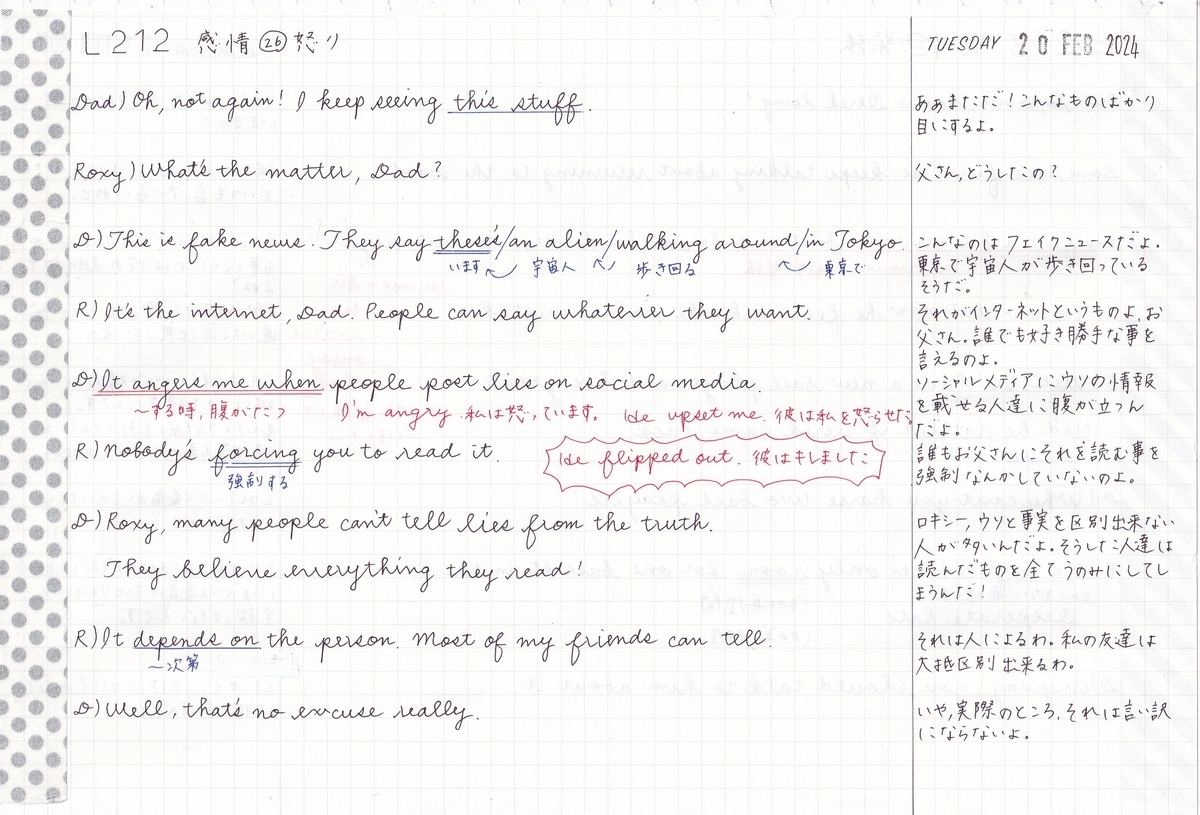 L212 感情㉖怒り
TUESDAY 20 FEB 2024
Dad) Oh, not again! I keep seeing this stuff.
ああまただ!こんなものばかり
目にするよ。
Roxy) What's the matter, Dad?
父さん,どうしたの?
D) This is fake news. They say these's/an alien/walking around/in Tokyo.
います 宇宙人 歩き回る 東京で
こんなのはフェイクニュースだよ.
東京で宇宙人が歩き回っている
そうだ。
R) It's the internet, Dad. People can say whatever they want.
それがインターネットというものよ,お
父さん。誰でも好き勝手な事を
言えるのよ.
D) It angers me when people post lies on social media.
〜する時,腹がたつ I'm angry. 私は怒っています。 He upset me. 彼は私を怒らせた
ソーシャルメディアにウソの情報
を載せる人達に腹が立つん
だよ.
R) Nobody's forcing you to read it.
強制する
He flipped out. 彼はキレました
誰もお父さんにそれを読む事を
強制なんかしていないのよ。
D) Roxy, many people can't tell lies from the truth.
They believe everything they read!
ロキシー,ウソと事実を区別出来ない
人が多いんだよ。そうした人達は
読んだものを全てうのみにしてし
まうんだ!
R) It depends on the person. Most of my friends can tell.
〜次第
それは人によるわ。私の友達は
大抵区別出来るわ。
D) Well, that's no excuse really.
いや,実際のところ,それは言い訳
にならないよ。